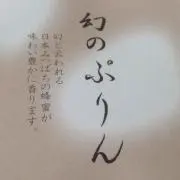 幻のぷりん
幻と云われる
日本みつばちの蜂蜜が
味わい豊かに香ります。